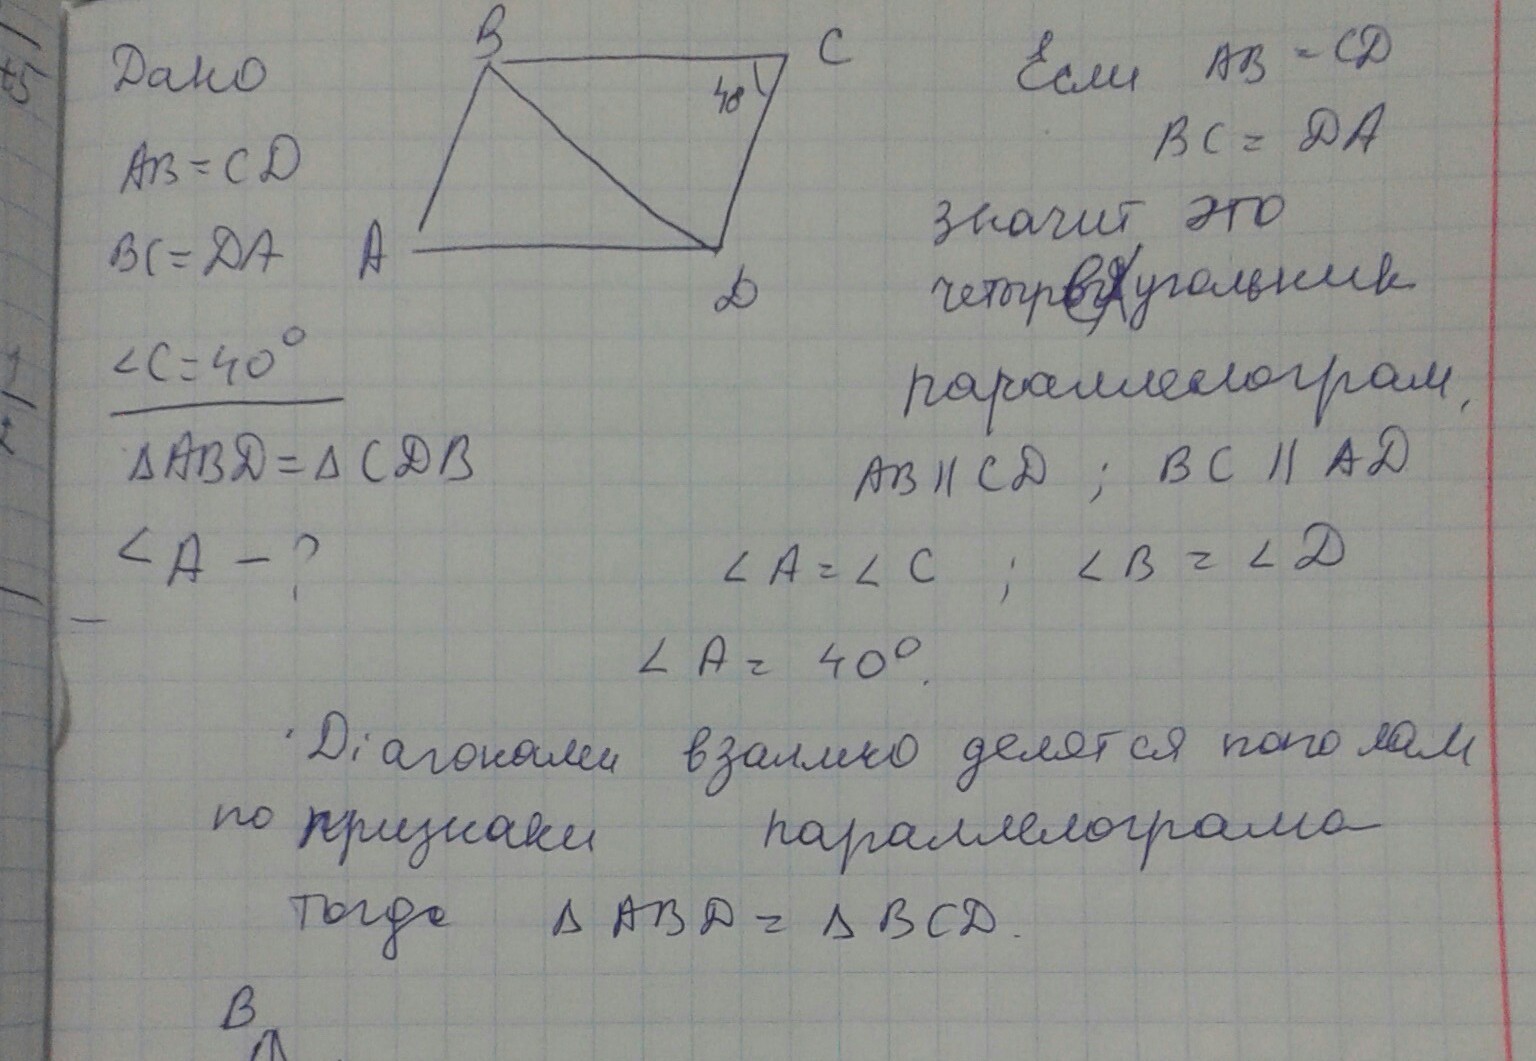 Дано
AB = CD
BC = DA
∠C = 40°
△ABD = △CDB
∠A - ?
B
C
40
A
D
Если AB = CD
BC = DA
значит это
четырёхугольник
параллелограм,
AB || CD ; BC || AD
∠A = ∠C ; ∠B = ∠D
∠A = 40°.
Діагонали взаимно делятся пополам
по признаки параллелограма
тогда △ABD = △BCD.
B